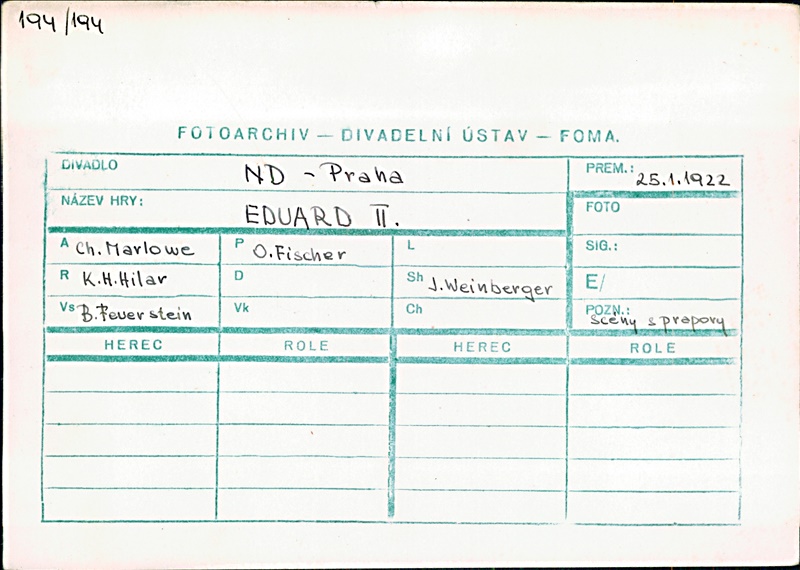 194/194
FOTOARCHIV — DIVADELNÍ ÚSTAV — FOMA.
DIVADLO ND - Praha PREM.: 25.1.1922
NÁZEV HRY: EDUARD II. FOTO
A Ch. Marlowe P O. Fischer L SIG.:
R K.H.Hilar D Sh J. Weinberger E/
Vs B. Feuerstein Vk Ch POZN.: scény s prapory
HEREC ROLE HEREC ROLE